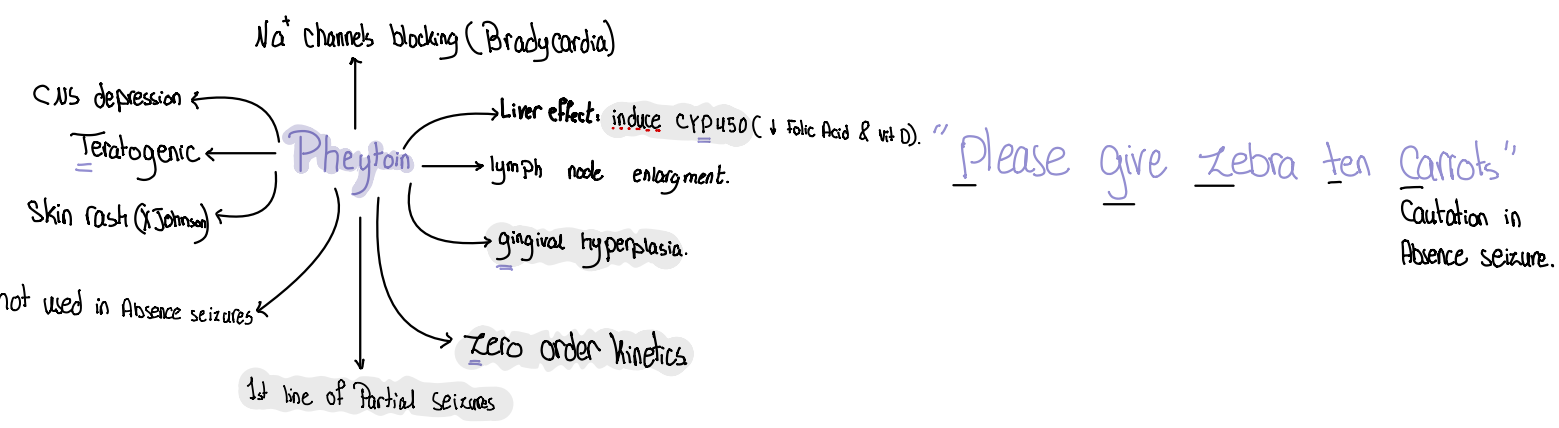 Na+ channels blocking (Bradycardia)
CNS depression
Teratogenic
Skin rash (X Johnson)
not used in Absence seizures
Pheytoin
1st line of Partial seizures
Liver effect: induce CYP450 (↓ Folic Acid & vit D).
lymph node enlargment.
gingival hyperplasia.
Zero order kinetics
"Please give Zebra ten Carrots"
Cautation in
Absence seizure.